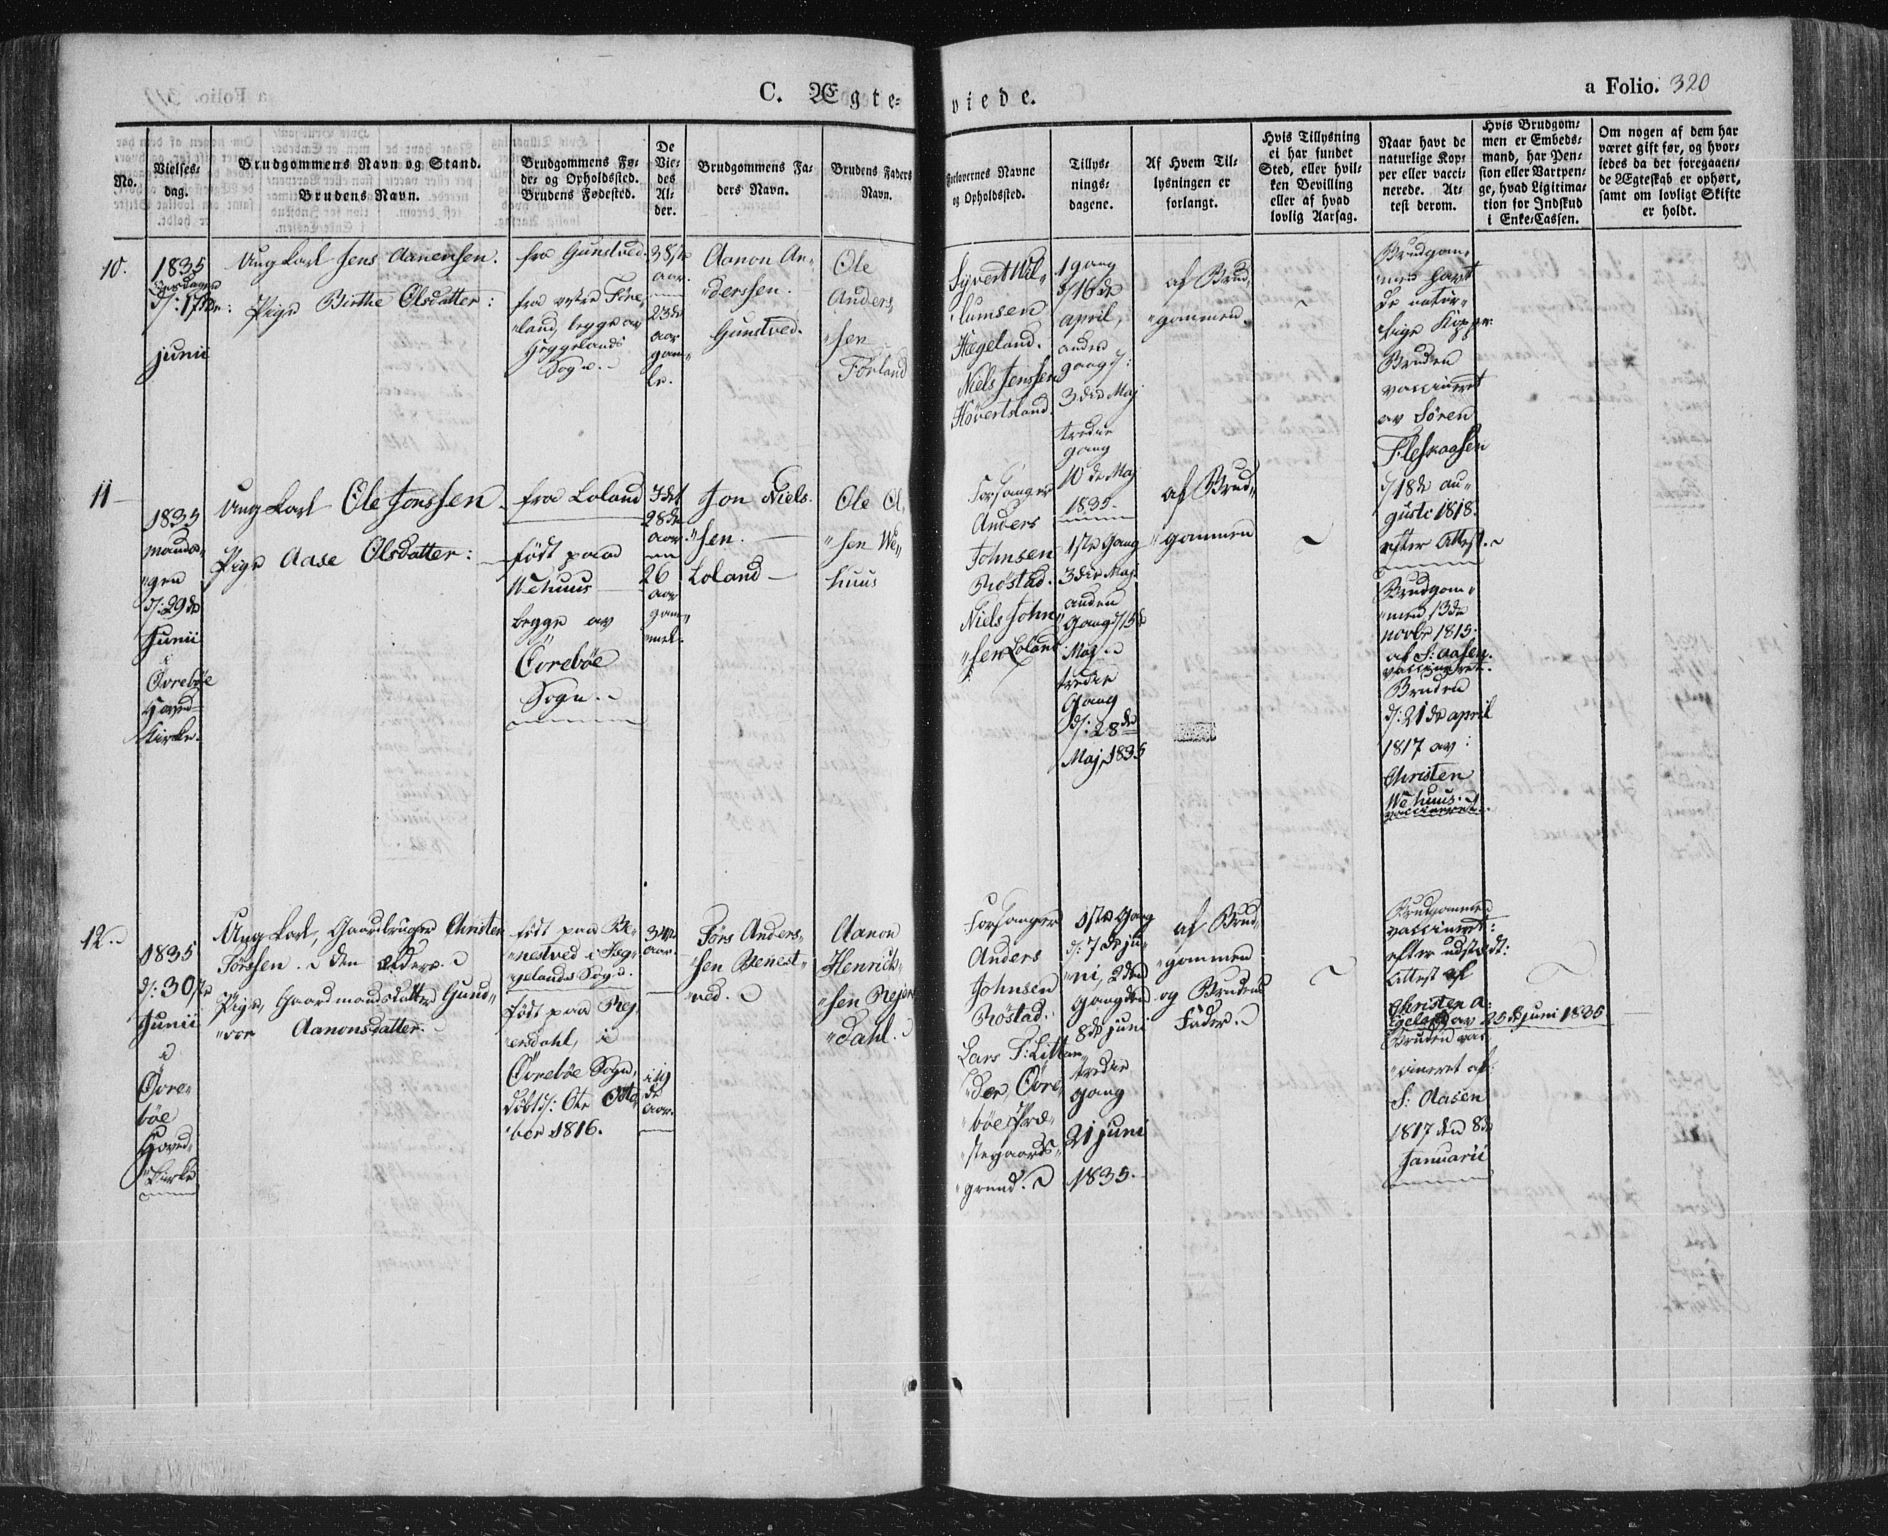 C. Ægte-
viede.
a Folio. 320
No.
Vielses-
dag.
Brudgommens Navn og Stand.
Brudens Navn.
Brudgommens Fø-
de- og Opholdssted.
Brudens Fødested.
De
Vie-
des
Al-
der.
Brudgommens Fa-
ders Navn.
Brudens Faders
Navn.
Forlovernes Navne
og Opholdssted.
Tillys-
nings-
dagene.
Af Hvem Til-
lysningen er
forlangt.
Hvis Tillysning
ei har fundet
Sted, eller hvil-
ken Bevilling
eller af hvad
lovlig Aarsag.
Naar havt de
naturlige Kop-
per eller vacci-
nerede. At-
test derom.
Hvis Brudgom-
men er Embeds-
mand, har Pen-
sion eller Vartpen-
ge, hvad Ligitima-
tion for Indskud
i Enke-Cassen.
Om nogen af dem har
været gift før, og hvor-
ledes da det foregaaen-
de Ægteskab er ophørt,
samt om lovligt Skifte
er holdt.
10.
1835
d: 17de
junii
Ungkarl Jens Aanensen.
Pige Birthe Olsdatter:
fra Gunstved.
fra ystre Føre-
land, begge av
Heggelands
Sogn.
38te
aar.
23de
aar
gam-
le.
Aanon An-
derssen.
Gunstved.
Ole
Anders-
sen
Förland
Syvert Wil-
lumsen
Hægeland.
Niels Jenssen
Høvertsland.
1 gang
d/16de
april,
anden
gang d:
3die Maj
tredie
gang
10de Maj
1835.
af Brud-
gommen.
Brudgom-
men havt
de natur-
lige Kopper
Bruden
vaccineret
av Sören
Fleskaasen
d/18de au-
gusti 1818.
efter Attest.
11
1835
manda-
gen
d: 29de
Junii
i
Øvrebøe
Hoved-
Kirke.
Ungkarl Ole Jonssen.
Pige Aase Olsdatter:
fra Loland
født paa
Wehuus
begge av
Øvrebøe
Sogn.
28de
aar
26
aar
gam-
mel.
Jon Niels-
sen.
Loland
Ole Ol-
sen We-
huus
Forsanger
Anders
Johnsen
Røstad.
Niels John-
sen Loland
1ste Gang
3die Maj.
anden
Gang d/15de
Maj
tredie
Gang
d: 28de
Maj, 1835
af Brud-
gommen
Brudgom-
men 13de
novbr 1815.
af S: Aasen.
vaccineret.
Bruden
d: 21de april
1817 av:
Christen
Wehuus.
vaccineret.
12.
1835
d: 30te
Junii
i
Øvre-
bøe
Hoved-
kirke
Ungkarl, Gaardbruger Christen
Tørssen. den ældere.
Pige, Gaardmandsdatter Gund-
vor Aanonsdatter.
født paa Be-
nestved i Heg-
gelands Sogn.
født paa Rej-
erdahl, i
Øvrebøe Sogn,
døbt d: 6te Octo-
ber 1816.
aar.
i 19
de
aar.
Törs Anders-
sen Benest-
ved.
Aanon
Henrich-
sen Rejers-
dahl.
Forsanger
Anders
Johnsen
Røstad:
Lars T: Litlan-
der, Øvre-
bøe Præ-
stegaards-
grund.
1ste Gang
d: 7de ju-
ni, 2den
Gang den
8de juni
tredie
gang
21 juni
1835.
af Brud-
gommen
og Brudens
Fader.
Brudgommen
vaccineret:
efter udstædt:
Attest af
Christen A:
Egeland av 25de juni 1835
Bruden vac-
cineret af:
S: Aasen
1817 den 8de
Januarii